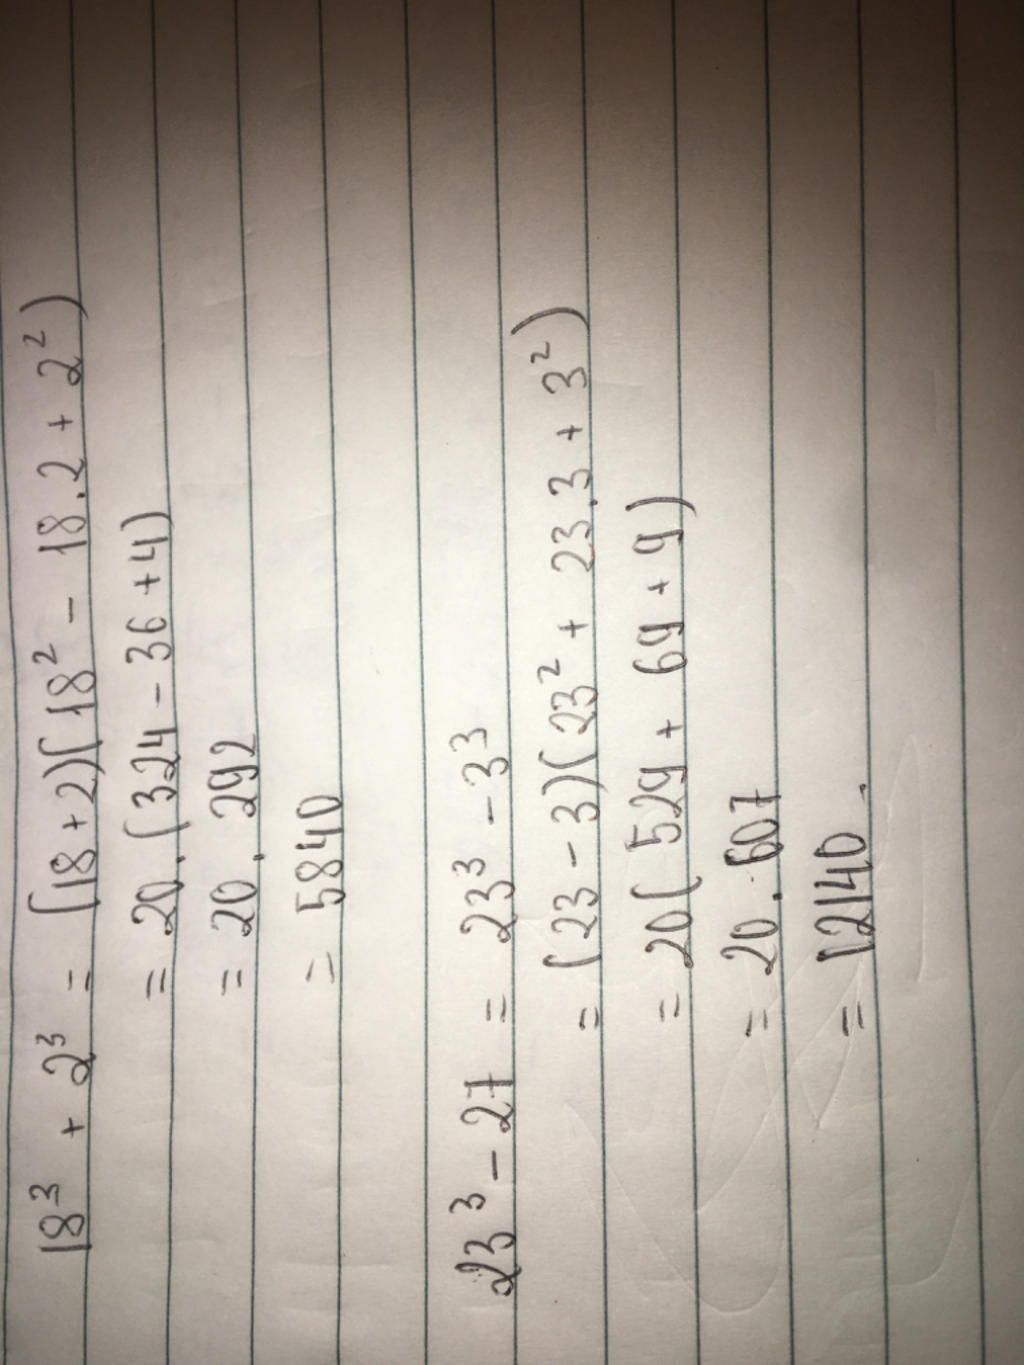 18³ + 2³ = (18+2)(18² - 18.2 + 2²)
= 20.(324 - 36 + 4)
= 20 . 292
= 5840
23³ - 27 = 23³ - 3³
= (23 - 3)(23² + 23.3 + 3²)
= 20(529 + 69 + 9)
= 20 . 607
= 12140.